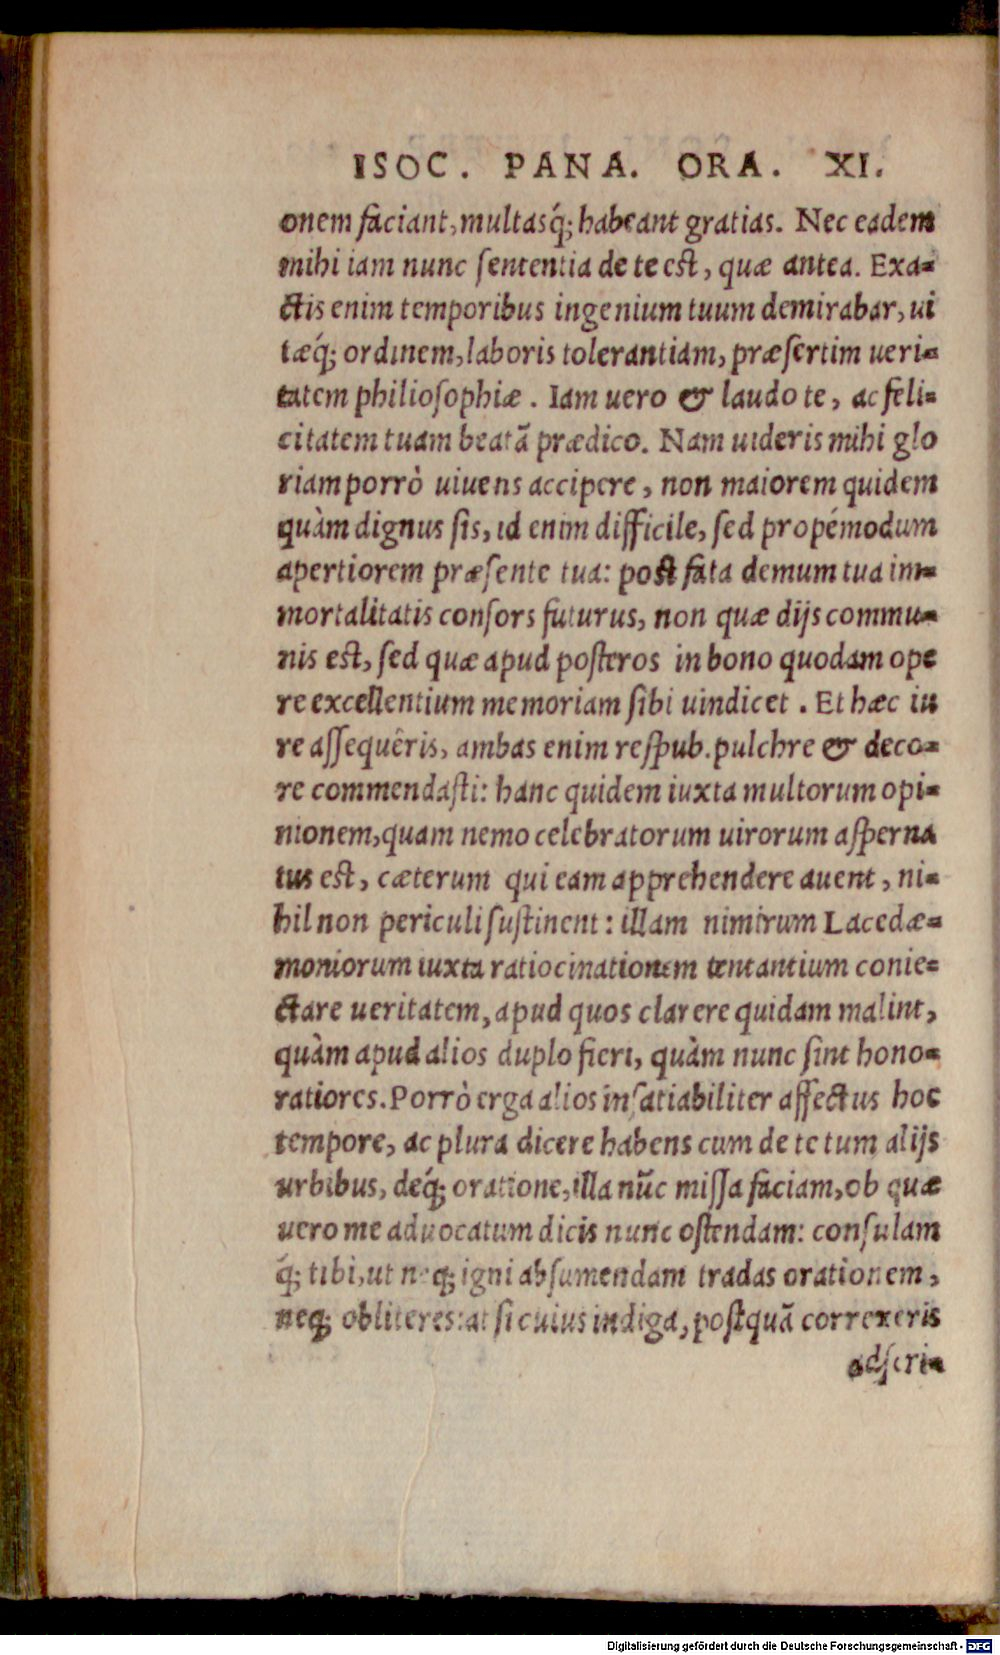 ISOC. PANA. ORA. XI.
onem faciant, multasq́; habeant gratias. Nec eadem
mihi iam nunc sententia de te est, quæ antea. Exa-
ctis enim temporibus ingenium tuum demirabar, ui
tæq́; ordinem, laboris tolerantiam, præsertim ueri-
tatem philiosophiæ. Iam uero & laudo te, ac feli-
citatem tuam beatā prædico. Nam uideris mihi glo
riam porrò uiuens accipere, non maiorem quidem
quàm dignus sis, id enim difficile, sed propémodum
apertiorem præsente tua: post fata demum tua im-
mortalitatis consors futurus, non quæ dijs commu-
nis est, sed quæ apud posteros in bono quodam ope
re excellentium memoriam sibi uindicet. Et hæc iu
re assequêris, ambas enim respub. pulchre & deco-
re commendasti: hanc quidem iuxta multorum opi-
nionem, quam nemo celebratorum uirorum asperna
tus est, cæterum qui eam apprehendere auent, ni-
hil non periculi sustinent: illam nimirum Lacedæ-
moniorum iuxta ratiocinationem tentantium conie-
ctare ueritatem, apud quos clarere quidam malint,
quàm apud alios duplo fieri, quàm nunc sint hono-
ratiores. Porrò erga alios insatiabiliter affectus hoc
tempore, ac plura dicere habens cum de te tum alijs
urbibus, deq́; oratione, illa nūc missa faciam, ob quæ
uero me aduocatum dicis nunc ostendam: consulam
q́; tibi, ut neq; igni absumendam tradas orationem,
neq; obliteres: at si cuius indiga, postquā correxeris
adscri-
Digitalisierung gefördert durch die Deutsche Forschungsgemeinschaft - DFG